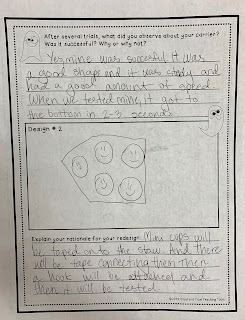 After several trials, what did you observe about your carrier?
Was it successful? Why or why not?
Yes, mine was succesful. It was
a good shape and it was study and
had a good amount of speed.
When we tested mine, it got to
the bottom in 2-3 seconds
Design # 2
Explain your rationale for your redesign. Mini cups will
be taped onto the staw. And there
will be tape connecting them. Then
a hook will be attached and
then it will be tested.